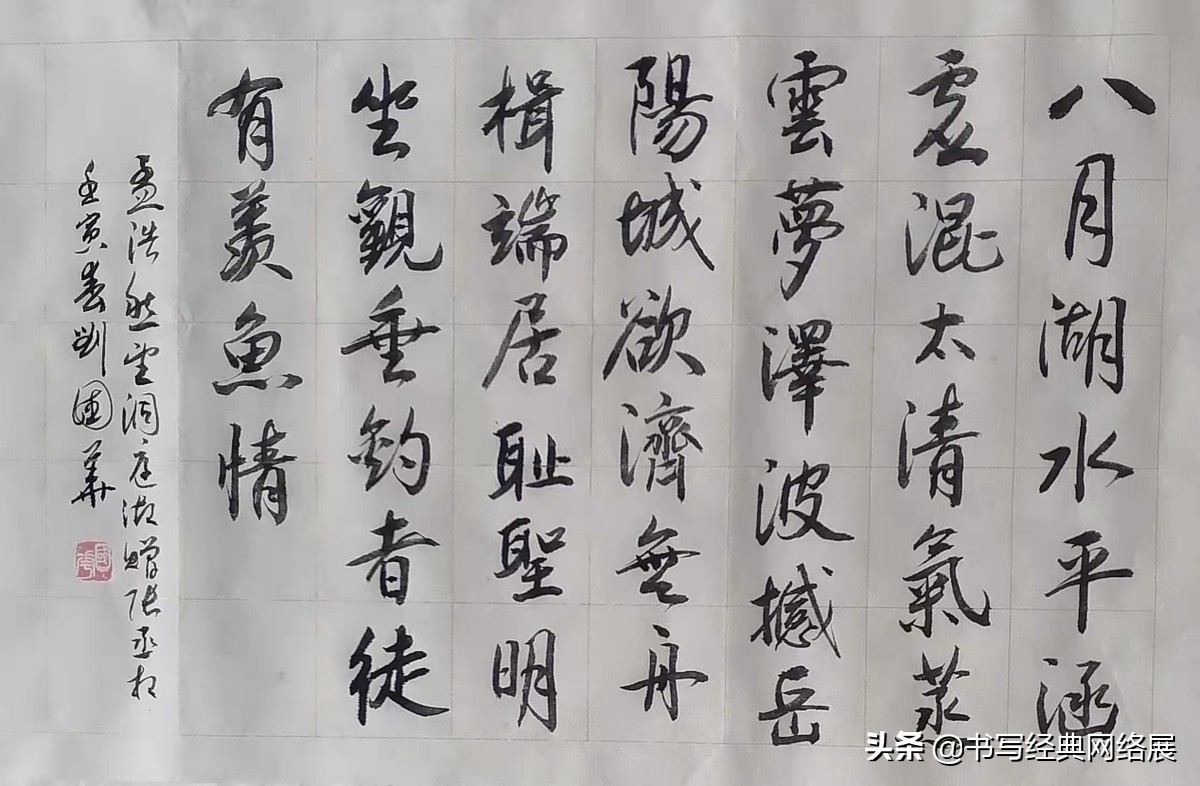 八月湖水平涵
虚混太清氣蒸
雲夢澤波撼岳
陽城欲濟無舟
楫端居耻聖明
坐觀垂釣者徒
有羡魚情
孟浩然望洞庭湖贈張丞相
壬寅春劉國華
头条 @书写经典网络展